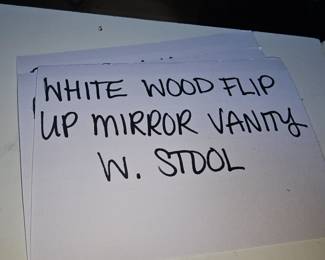 WHITE WOOD FLIP
UP MIRROR VANITY
W. STOOL